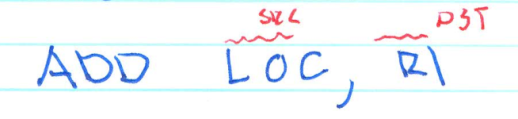 SRC DST
ADD LOC, R1